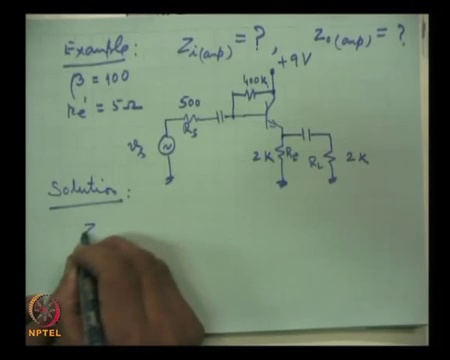 Example: Zi(amp) = ? , Zo(amp) = ?
β = 100
re' = 5Ω
+9V
400K
500
Rs
vs
2K RE
RL 2K
Solution:
Z
NPTEL